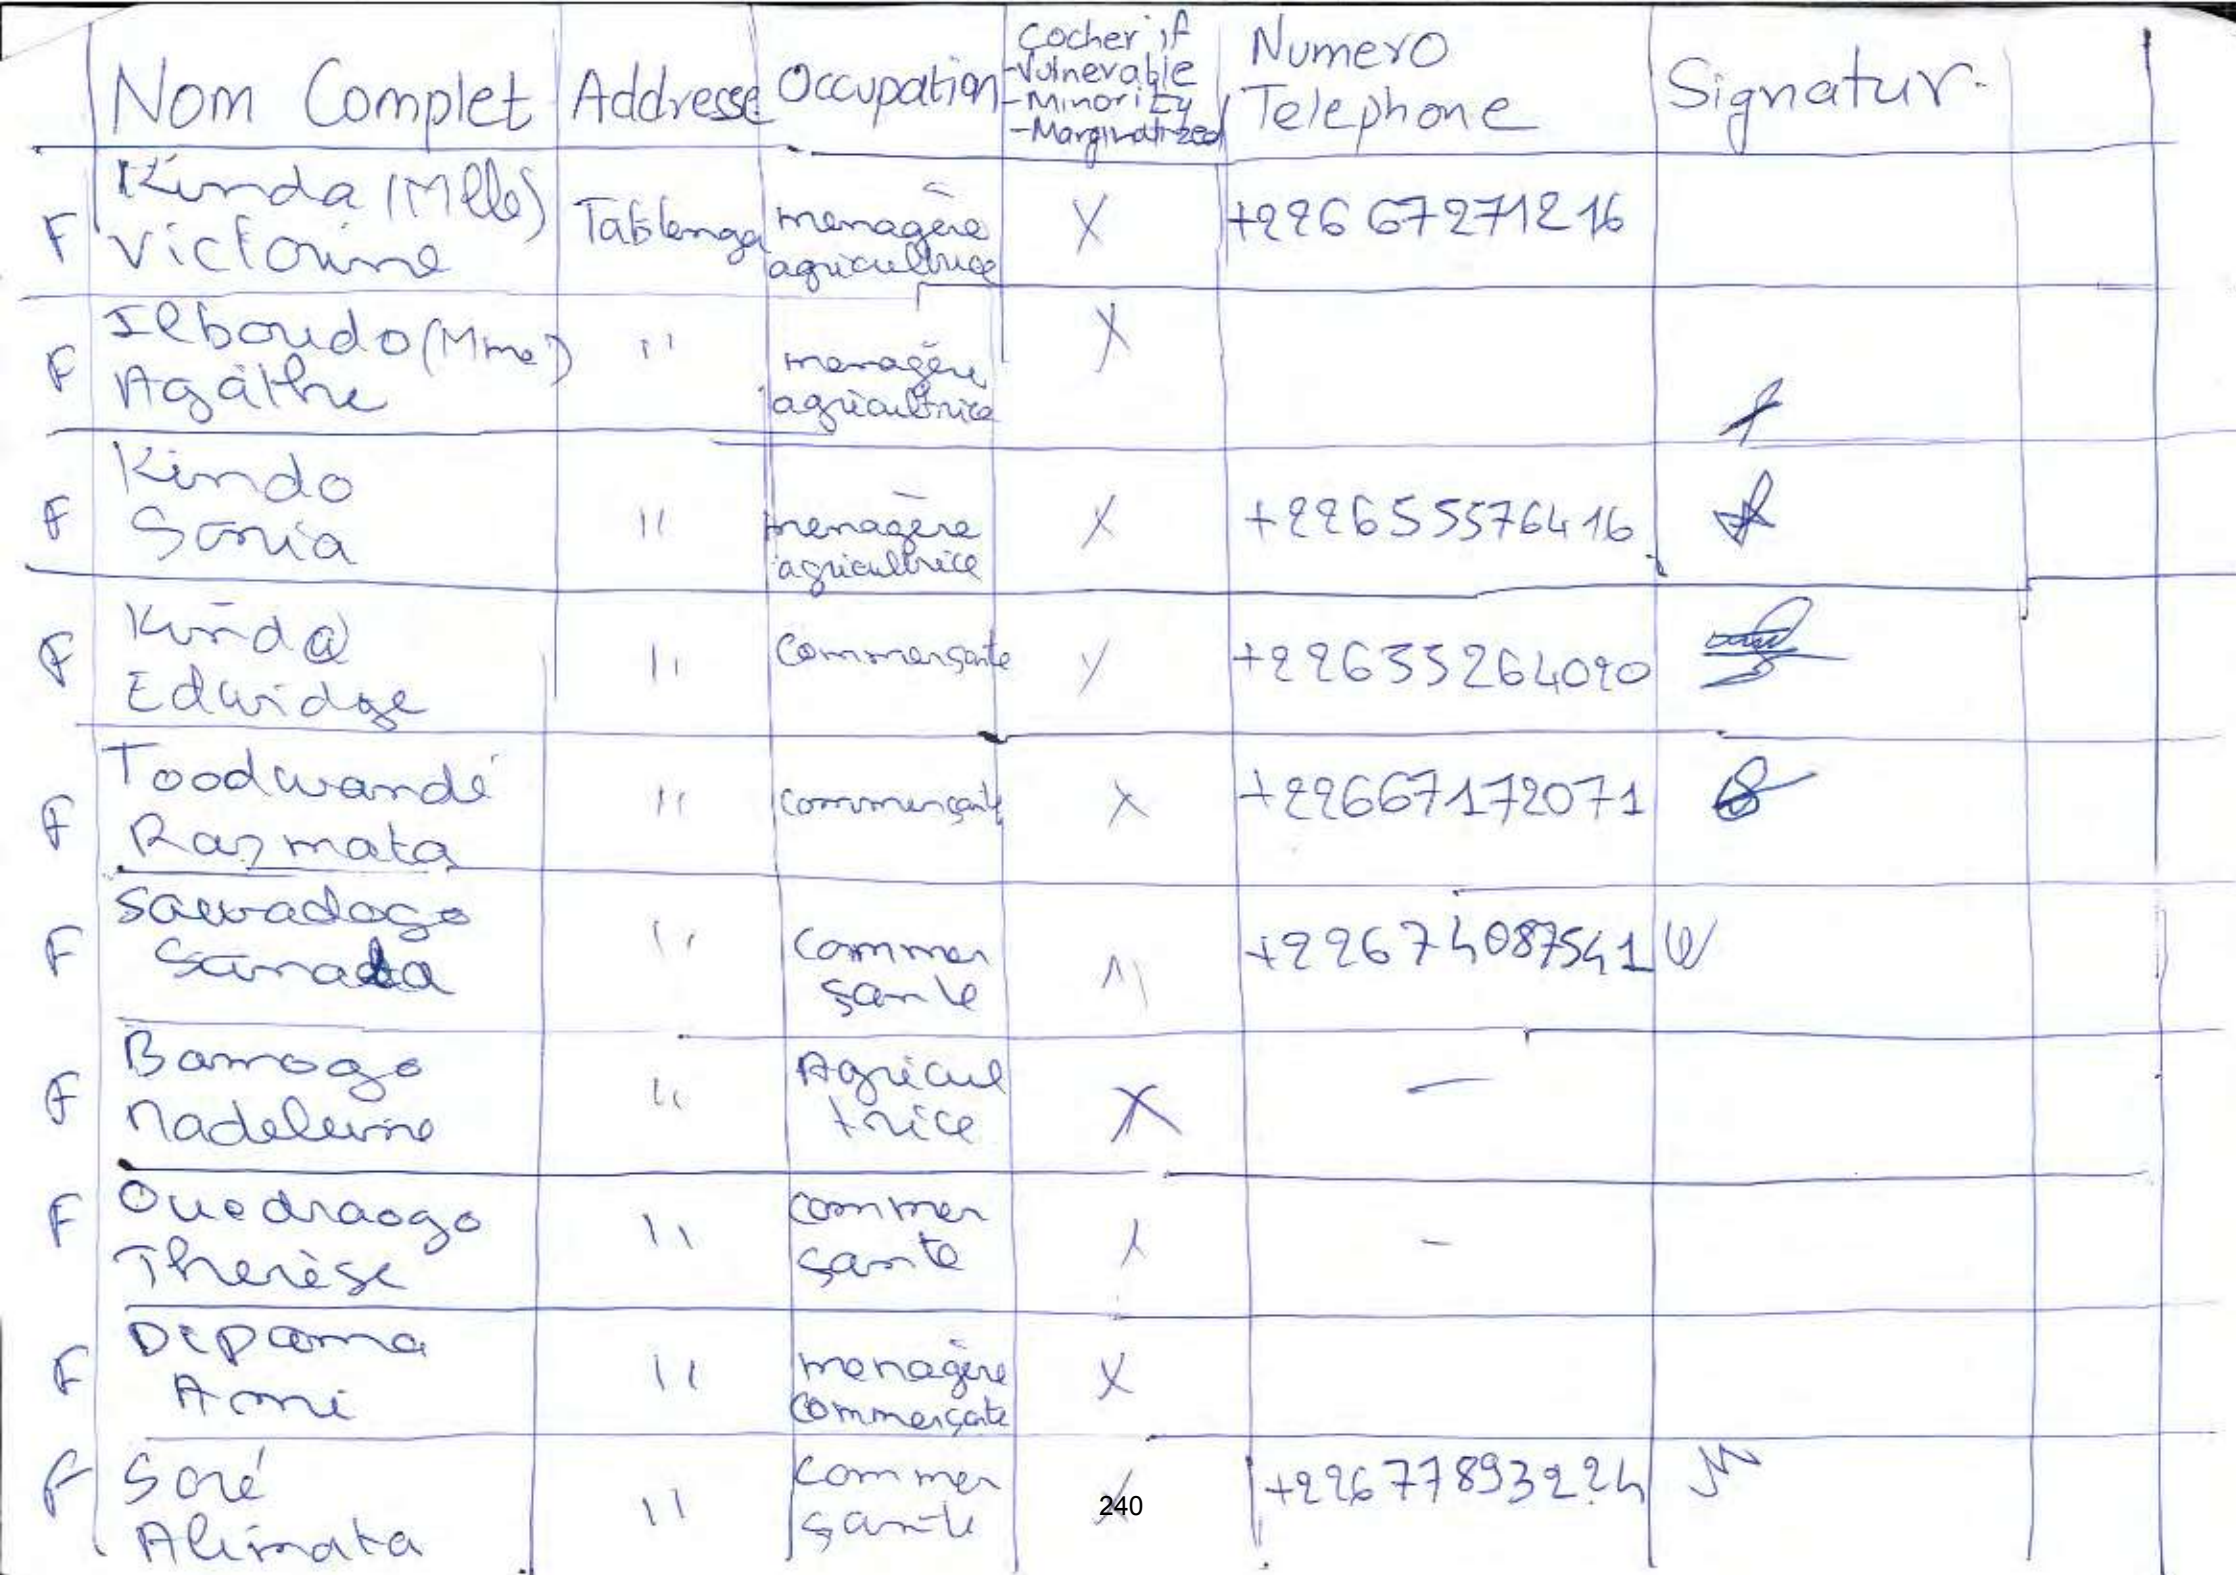 Nom Complet Addresse Occupation Cocher if -Vulnerable -Minority -Marginalized Numero Telephone Signatur.
F Kinda (Mlle) Victorine Tablenga menagère agricultrice X +226 67271216
F Ilboudo (Mme) Agathe " menagère agricultrice X
F Kindo Sonia " menagère agricultrice X +22655576416
F Kinda Edwidge " Commerçante X
F Toodwandé Razmata " commerçante X +22667172071
F Sawadogo " Commer sante X +22674087541
F Bamogo Madeleine " Agricul trice X —
F Ouedraogo Therèse " commer sante X -
F Depama Ami " menagère commerçante X
F Soré Alimata " Commer sante X +22677893224
240